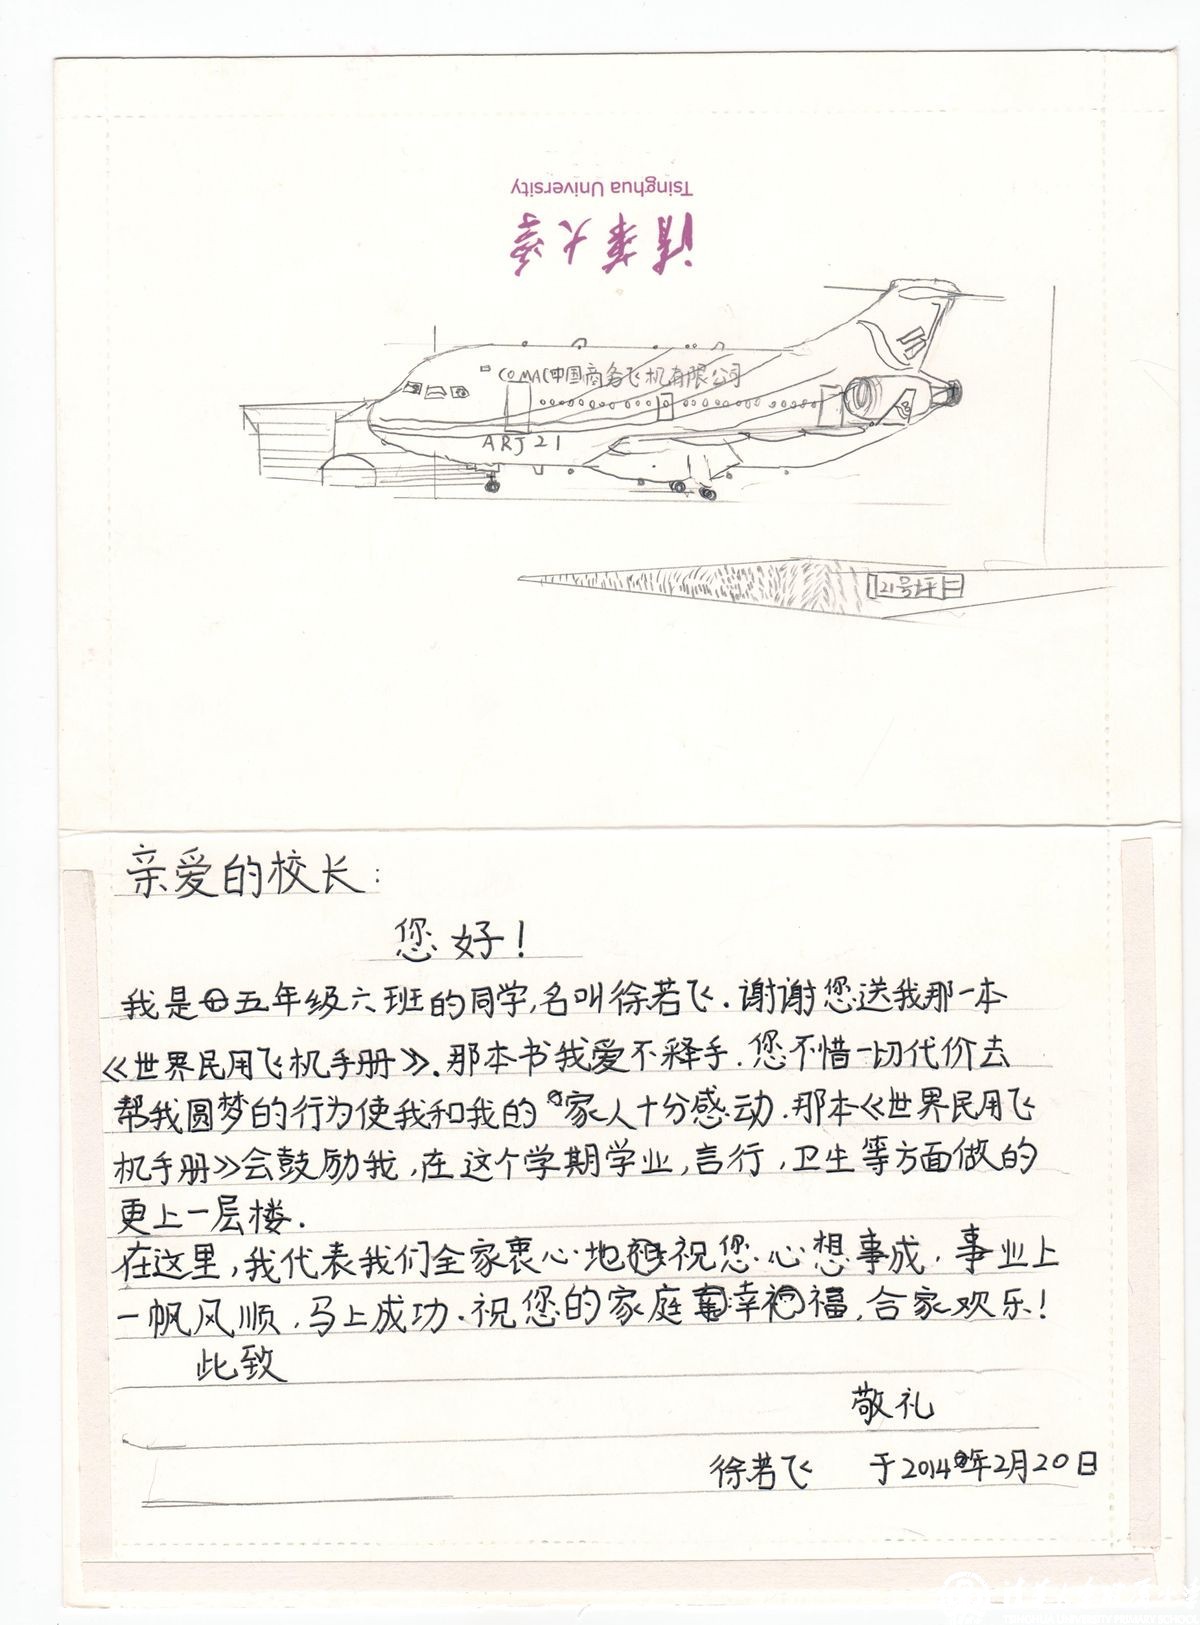 Tsinghua University
清华大学
COMAC中国商务飞机有限公司
ARJ21
21号坪
亲爱的校长：
您好！
我是五年级六班的同学,名叫徐若飞.谢谢您送我那一本
《世界民用飞机手册》.那本书我爱不释手.您不惜一切代价去
帮我圆梦的行为使我和我的家人十分感动.那本《世界民用飞
机手册》会鼓励我,在这个学期学业,言行,卫生等方面做的
更上一层楼.
在这里,我代表我们全家衷心地祝您心想事成,事业上
一帆风顺,马上成功.祝您的家庭幸福,合家欢乐!
此致
敬礼
徐若飞 于2014年2月20日
TSINGHUA UNIVERSITY PRIMARY SCHOOL